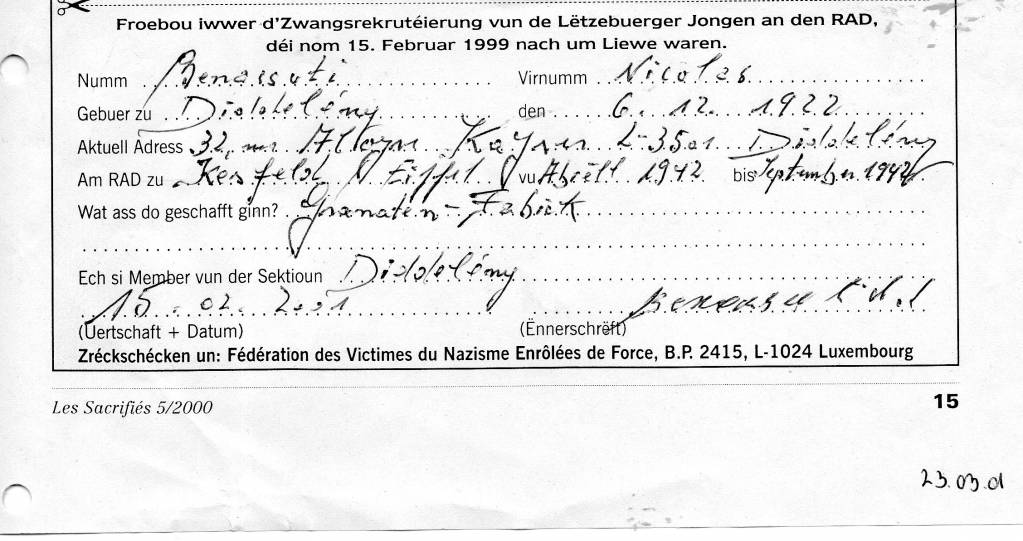 Froebou iwwer d'Zwangsrekrutéierung vun de Lëtzebuerger Jongen an den RAD,
déi nom 15. Februar 1999 nach um Liewe waren.
Numm Benassuti Virnumm Nicolas
Gebuer zu Diddeléng den 6. 12. 1922
Aktuell Adress 32, L-3501 Diddeléng
Am RAD zu Eiffel vu Abrëll 1942 bis September 1942
Wat ass do geschafft ginn? Granaten-Fabrik
Ech si Member vun der Sektioun Diddeléng
15. 02. 2001
(Uertschaft + Datum) (Ënnerschrëft)
Zréckschécken un: Fédération des Victimes du Nazisme Enrôlées de Force, B.P. 2415, L-1024 Luxembourg
Les Sacrifiés 5/2000 15
23.03.01